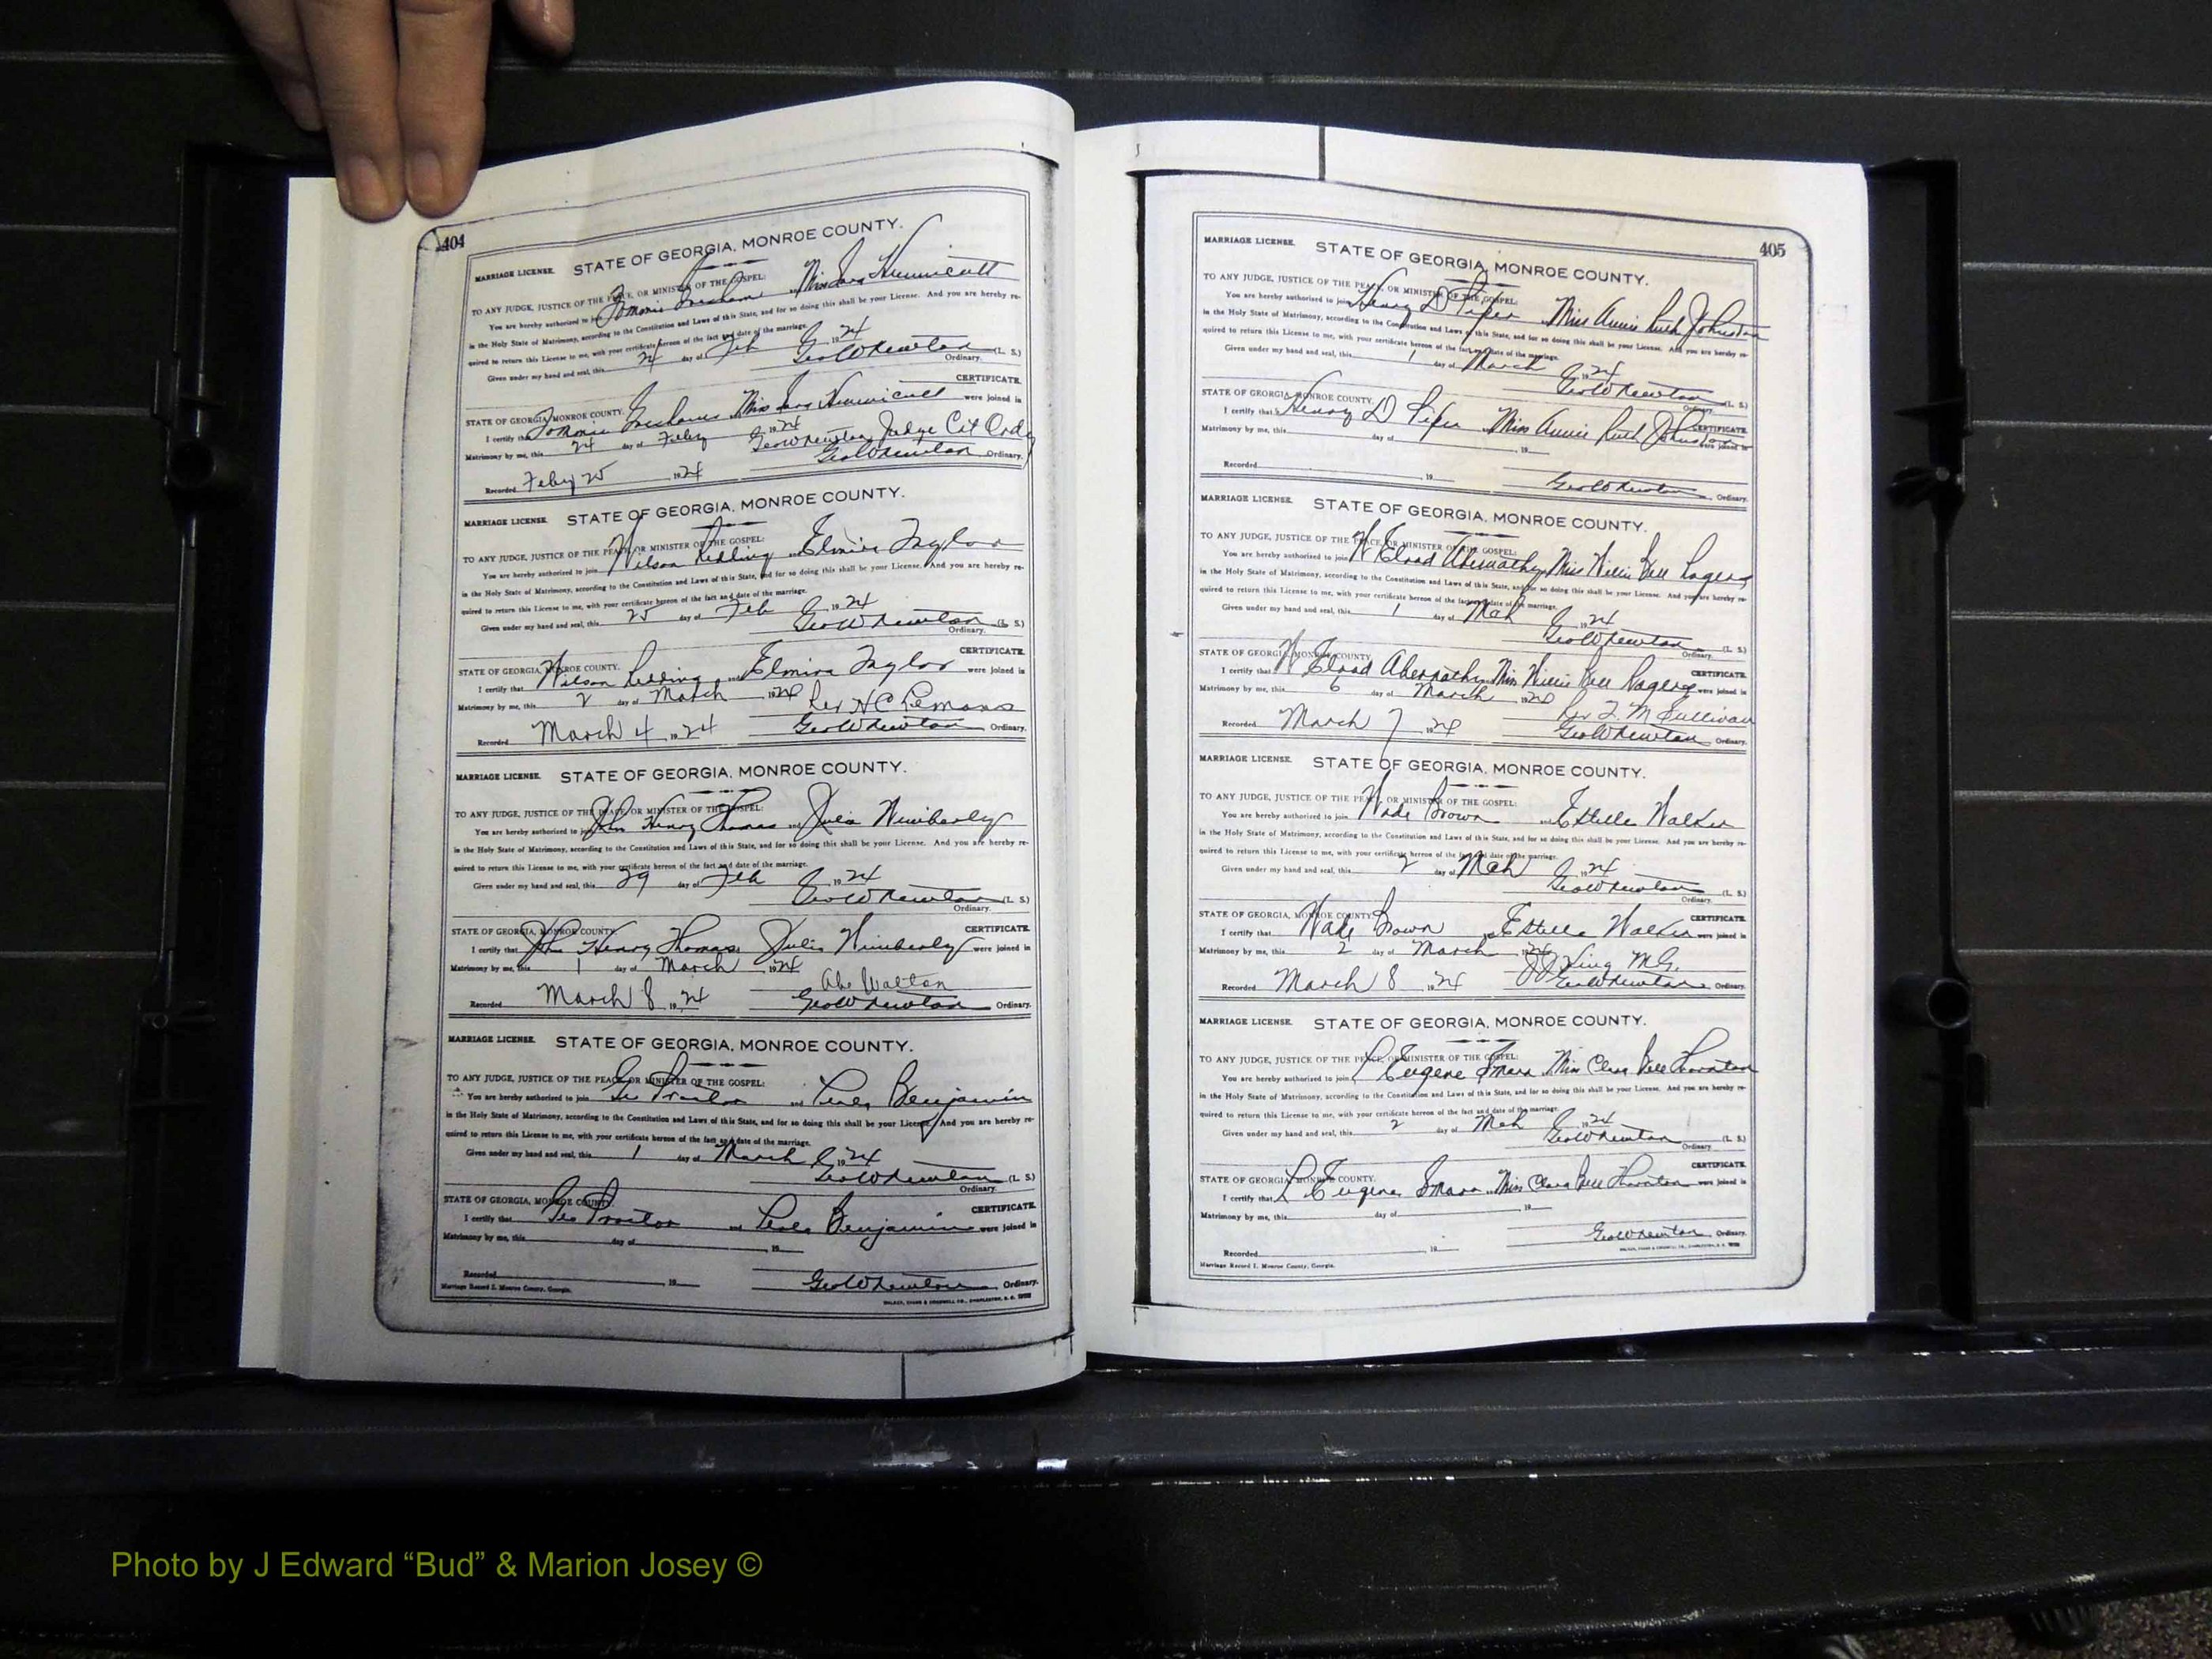 404
MARRIAGE LICENSE. STATE OF GEORGIA, MONROE COUNTY.
TO ANY JUDGE, JUSTICE OF THE PEACE, OR MINISTER OF THE GOSPEL:
You are hereby authorized to join and Miss Hunnicutt
in the Holy State of Matrimony, according to the Constitution and Laws of this State, and for so doing this shall be your License. And you are hereby re-
quired to return this License to me, with your certificate hereon of the fact and date of the marriage.
Given under my hand and seal, this 24 day of Feb 1924
Geo W Newton (L. S.)
Ordinary.
CERTIFICATE.
STATE OF GEORGIA, MONROE COUNTY.
I certify that Miss Hunnicutt were joined in
Matrimony by me, this 24 day of Feby 1924 Geo W Newton Judge Ct Ordy
Recorded Feby 25 1924 Geo W Newton Ordinary.
MARRIAGE LICENSE. STATE OF GEORGIA, MONROE COUNTY.
TO ANY JUDGE, JUSTICE OF THE PEACE, OR MINISTER OF THE GOSPEL:
You are hereby authorized to join Wilson Redding and Elmira Taylor
in the Holy State of Matrimony, according to the Constitution and Laws of this State, and for so doing this shall be your License. And you are hereby re-
quired to return this License to me, with your certificate hereon of the fact and date of the marriage.
Given under my hand and seal, this 25 day of Feb 1924
Geo W Newton (L. S.)
Ordinary.
CERTIFICATE.
STATE OF GEORGIA, MONROE COUNTY.
I certify that Wilson Redding and Elmira Taylor were joined in
Matrimony by me, this 2 day of March 1924 Rev H C
Recorded March 4 1924 Geo W Newton Ordinary.
MARRIAGE LICENSE. STATE OF GEORGIA, MONROE COUNTY.
TO ANY JUDGE, JUSTICE OF THE PEACE, OR MINISTER OF THE GOSPEL:
You are hereby authorized to join Jhn Henry Thomas and Julia Wimberly
in the Holy State of Matrimony, according to the Constitution and Laws of this State, and for so doing this shall be your License. And you are hereby re-
quired to return this License to me, with your certificate hereon of the fact and date of the marriage.
Given under my hand and seal, this 29 day of Feb 1924
Geo W Newton (L. S.)
Ordinary.
CERTIFICATE.
STATE OF GEORGIA, MONROE COUNTY.
I certify that Jhn Henry Thomas Julia Wimberly were joined in
Matrimony by me, this 1 day of March 1924
Abe Walton
Recorded March 8 1924 Geo W Newton Ordinary.
MARRIAGE LICENSE. STATE OF GEORGIA, MONROE COUNTY.
TO ANY JUDGE, JUSTICE OF THE PEACE, OR MINISTER OF THE GOSPEL:
You are hereby authorized to join Geo Proctor and Benjamin
in the Holy State of Matrimony, according to the Constitution and Laws of this State, and for so doing this shall be your License. And you are hereby re-
quired to return this License to me, with your certificate hereon of the fact and date of the marriage.
Given under my hand and seal, this 1 day of March 1924
Geo W Newton (L. S.)
Ordinary.
CERTIFICATE.
STATE OF GEORGIA, MONROE COUNTY.
I certify that Geo Proctor and Benjamin were joined in
Matrimony by me, this day of 19
Recorded 19 Geo W Newton Ordinary.
Marriage Record I. Monroe County, Georgia.
WALKER, EVANS & COGSWELL CO., CHARLESTON, S. C.
405
MARRIAGE LICENSE. STATE OF GEORGIA, MONROE COUNTY.
TO ANY JUDGE, JUSTICE OF THE PEACE, OR MINISTER OF THE GOSPEL:
You are hereby authorized to join Henry D Piper Miss Annie Ruth Johnston
in the Holy State of Matrimony, according to the Constitution and Laws of this State, and for so doing this shall be your License. And you are hereby re-
quired to return this License to me, with your certificate hereon of the fact and date of the marriage.
Given under my hand and seal, this 1 day of March 1924
Geo W Newton (L. S.)
Ordinary.
STATE OF GEORGIA, MONROE COUNTY.
CERTIFICATE.
I certify that Henry D Piper Miss Annie Ruth Johnston were joined in
Matrimony by me, this day of 19
Recorded 19 Geo W Newton Ordinary.
MARRIAGE LICENSE. STATE OF GEORGIA, MONROE COUNTY.
TO ANY JUDGE, JUSTICE OF THE PEACE, OR MINISTER OF THE GOSPEL:
You are hereby authorized to join W Abernathy Miss Willie Bell Rogers
in the Holy State of Matrimony, according to the Constitution and Laws of this State, and for so doing this shall be your License. And you are hereby re-
quired to return this License to me, with your certificate hereon of the fact and date of the marriage.
Given under my hand and seal, this 1 day of Mch 1924
Geo W Newton (L. S.)
Ordinary.
STATE OF GEORGIA, MONROE COUNTY.
CERTIFICATE.
I certify that W Abernathy Miss Willie Bell Rogers were joined in
Matrimony by me, this 6 day of March 1924
Rev T. M Sullivan
Recorded March 7 1924 Geo W Newton Ordinary.
MARRIAGE LICENSE. STATE OF GEORGIA, MONROE COUNTY.
TO ANY JUDGE, JUSTICE OF THE PEACE, OR MINISTER OF THE GOSPEL:
You are hereby authorized to join Wade Brown and Estelle Walker
in the Holy State of Matrimony, according to the Constitution and Laws of this State, and for so doing this shall be your License. And you are hereby re-
quired to return this License to me, with your certificate hereon of the fact and date of the marriage.
Given under my hand and seal, this 2 day of Mch 1924
Geo W Newton (L. S.)
Ordinary.
STATE OF GEORGIA, MONROE COUNTY.
CERTIFICATE.
I certify that Wade Brown Estelle Walker were joined in
Matrimony by me, this 2 day of March 1924
JJ King M.G.
Recorded March 8 1924 Geo W Newton Ordinary.
MARRIAGE LICENSE. STATE OF GEORGIA, MONROE COUNTY.
TO ANY JUDGE, JUSTICE OF THE PEACE, OR MINISTER OF THE GOSPEL:
You are hereby authorized to join L Eugene Smarr Miss Clara Bell Thornton
in the Holy State of Matrimony, according to the Constitution and Laws of this State, and for so doing this shall be your License. And you are hereby re-
quired to return this License to me, with your certificate hereon of the fact and date of the marriage.
Given under my hand and seal, this 2 day of Mch 1924
Geo W Newton (L. S.)
Ordinary.
CERTIFICATE.
STATE OF GEORGIA, MONROE COUNTY.
I certify that L Eugene Smarr Miss Clara Bell Thornton were joined in
Matrimony by me, this day of 19
Recorded 19 Geo W Newton Ordinary.
WALKER, EVANS & COGSWELL CO., CHARLESTON, S. C.
Marriage Record I. Monroe County, Georgia.
Photo by J Edward “Bud” & Marion Josey ©